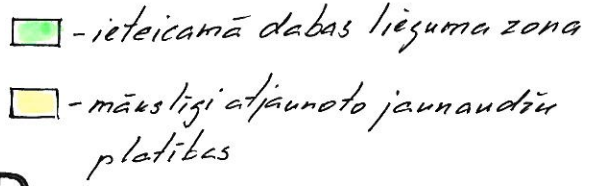 - ieteicamā dabas lieguma zona
- mākslīgi atjaunoto jaunaudžu
platības